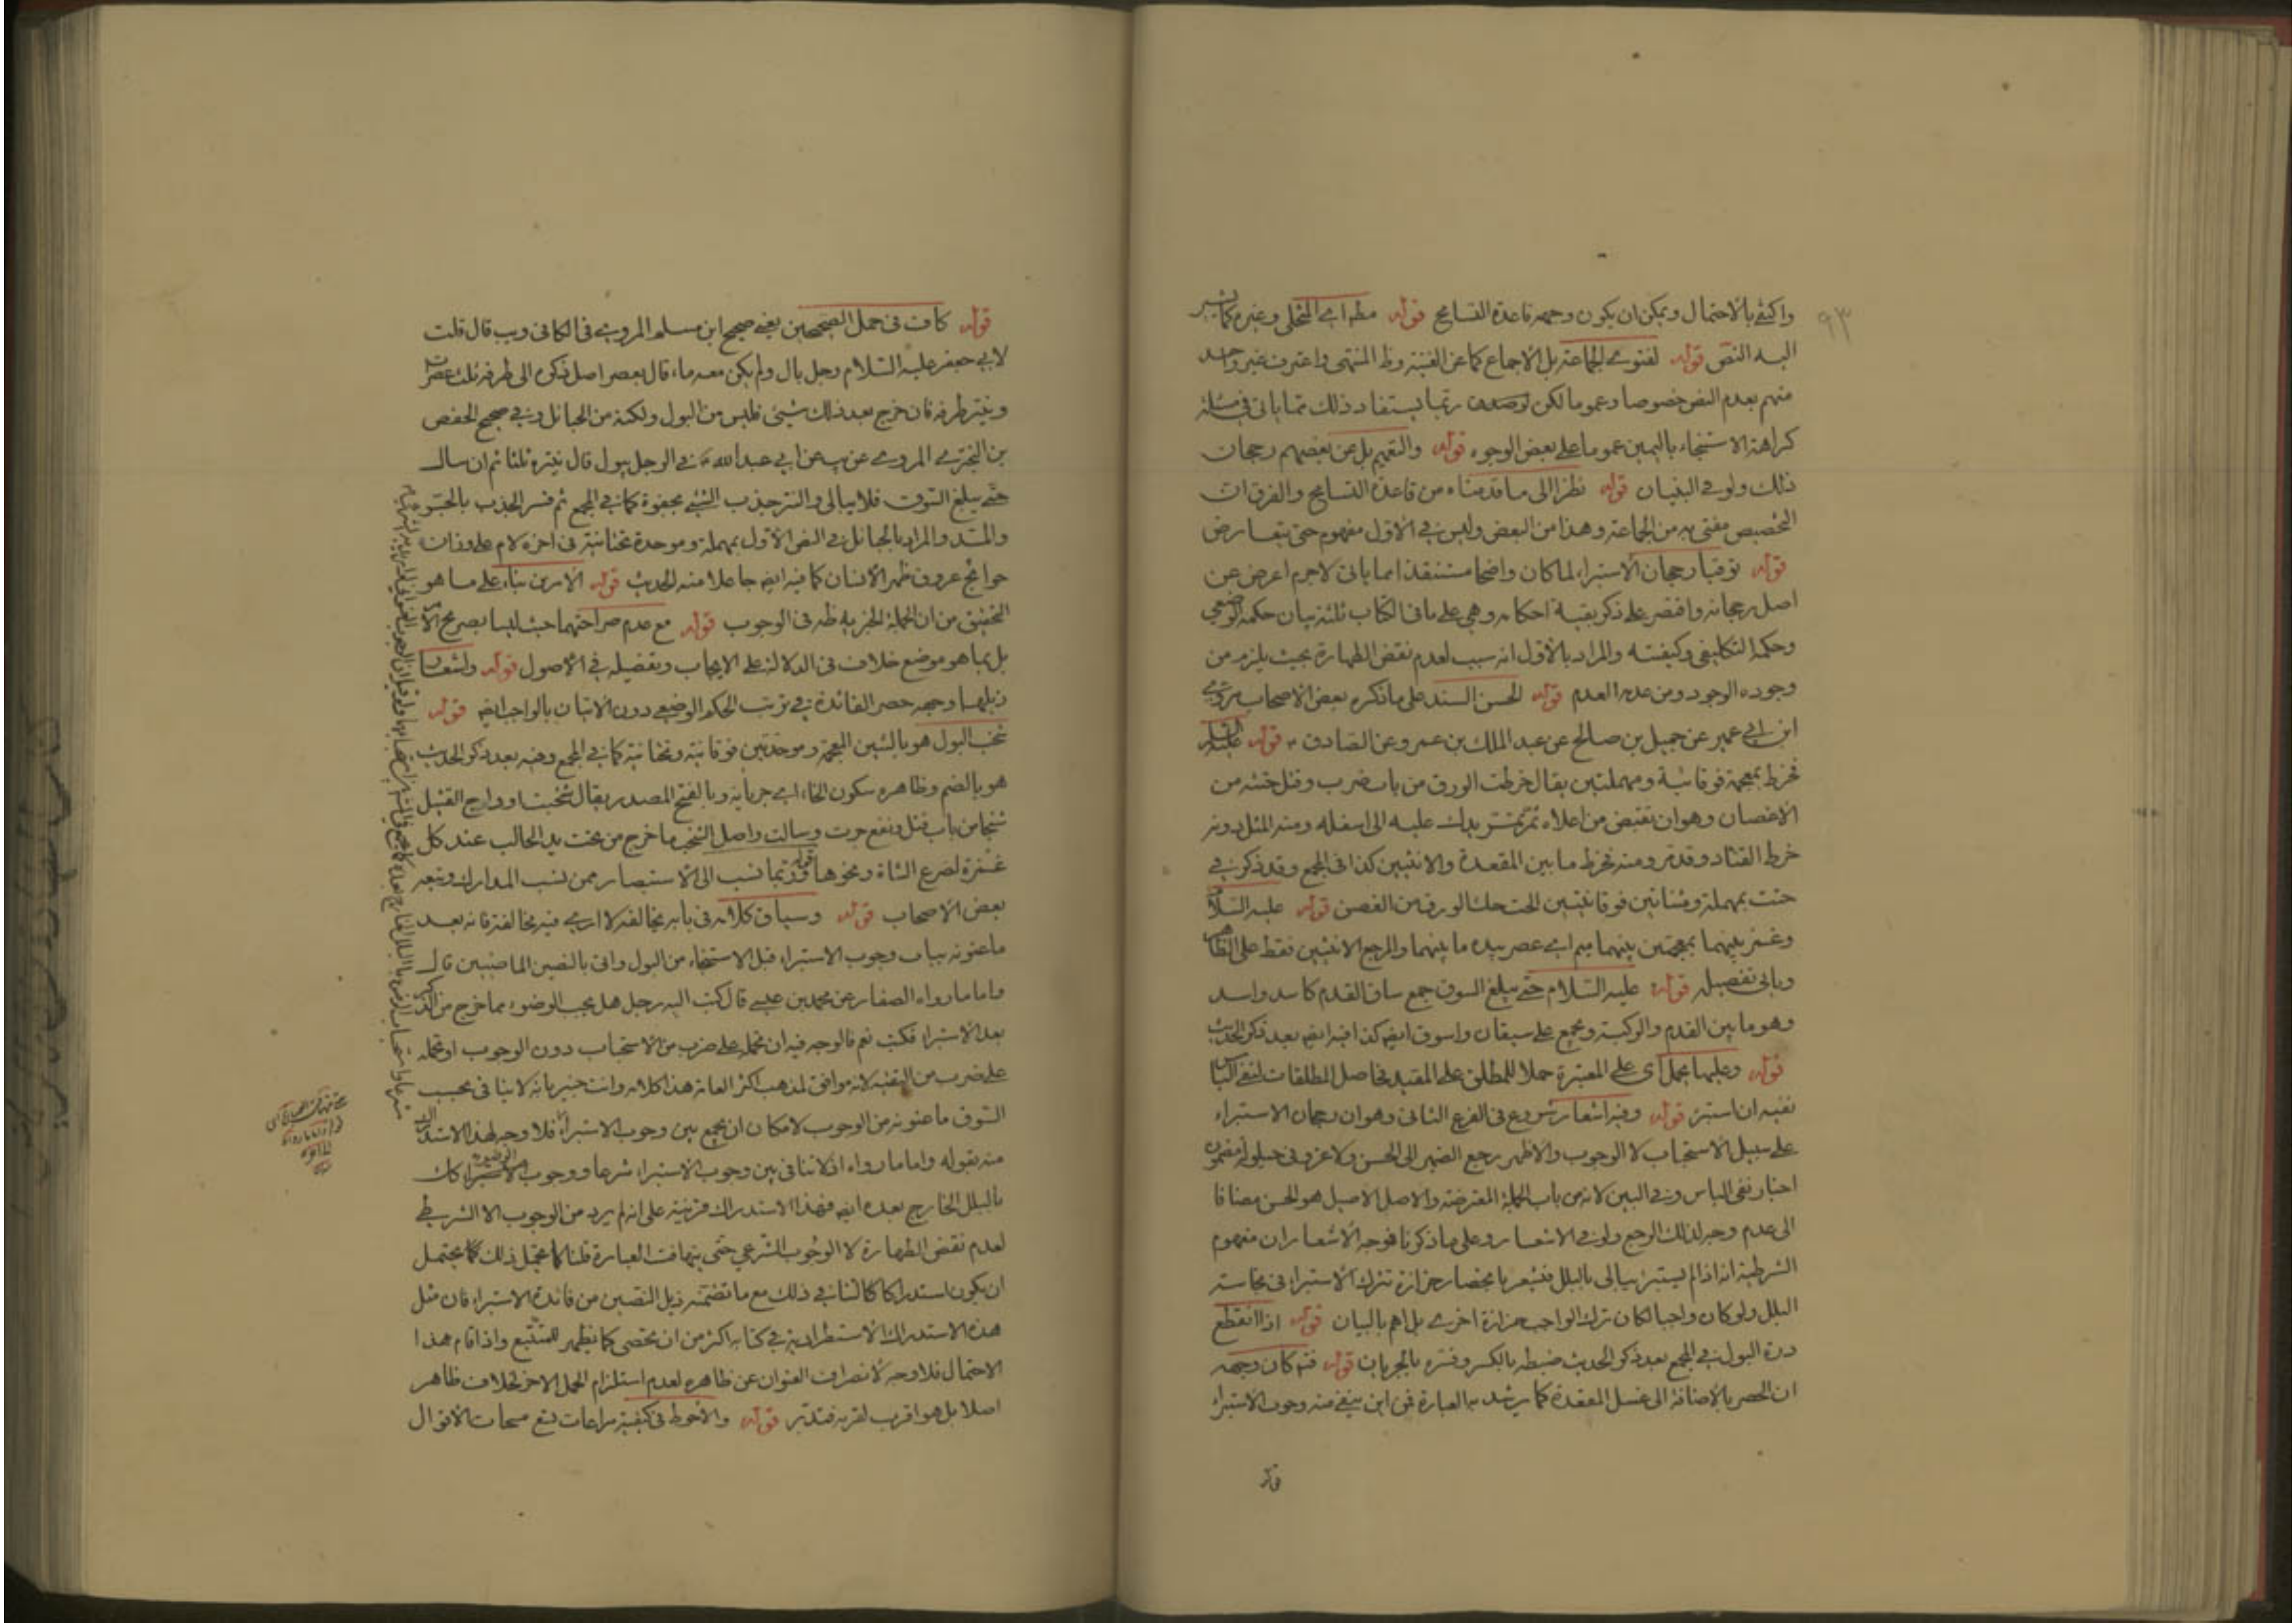 ٩٣
واكتفى بالاحتمال ويمكن ان يكون وجهه قاعدة التسامح قوله مظه اى المتخلى وغيره كما يشير
اليه النص قوله لفتوى الجماعة بل الاجماع كما عن الغنية وظ المنتهى واعترف غير واحد
منهم بعدم النص خصوصا وعموما لكن ربما يستفاد ذلك مما ياتى فى مسئلة
كراهة الاستنجاء باليمين عموما على بعض الوجوه قوله والتعميم بل عن بعضهم رجحان
ذلك ولو فى البنيان قوله نظرا الى ما قدمناه من قاعدة التسامح والفرق ان
التخصيص مفتى به من الجماعة وهذا من البعض وليس فى الاول مفهوم حتى يتعارض
قوله رجحان الاستبراء لما كان واضحا مستنقذا مما ياتى لاجرم اعرض عن
اصل رجحانه واقتصر على ذكر بقية احكامه وهى على ما فى الكتاب ثلثة بيان حكمه الوضعى
وحكمه التكليفى وكيفيته والمراد بالاول انه سبب لعدم نقض الطهارة بحيث يلزم من
وجوده الوجود ومن عدمه العدم قوله لحسن السند على ما ذكره بعض الاصحاب يروى
ابن ابى عمير عن جميل بن صالح عن عبد الملك بن عمرو عن الصادق ع قوله عليه السلم
فخرط بمعجمة فوقانية ومهملتين يقال خرطت الورق من باب ضرب وقتل حتته من
الاغصان وهو ان تقبض من اعلاه ثم تمر يدك عليه الى اسفله ومنه المثل دونه
خرط القتاد وقدم ومنه تخرط ما بين المقعدة والانثيين كذا فى المجمع وقد ذكر فى
حتت بمهملة ومثناتين فوقانيتين الحت حك الورق من الغصن قوله عليه السلام
وغمز بينهما بمعجمتين بينهما ميم اى عصر بيده ما بينهما والمرجع الانثيين فقط على الظاهر
وياتى تفصيله قوله عليه السلام حتى يبلغ السوق جمع ساق القدم كاسد واسد
وهو ما بين القدم والركبة ويجمع على سيقان واسوق ايضا كذا فيه ايضا بعد ذكر الحديث
قوله وعليها يحمل اى على المعتبرة حملا للمطلق على المقيد فحاصل المطلقات لنفى الباس
نفيه ان استبرء قوله وفيه اشعار شروع فى الفرع الثانى وهو ان رجحان الاستبراء
على سبيل الاستحباب لا الوجوب والاظهر رجع الضمير الى الحسن ولا غرو فى حيلولة مضمون
اخبار نفى الباس وفى البين لانه من باب الجملة المعترضة والاصل الاصيل هو الحسن مضافا
الى عدم وجه لذلك الرجع ولو فى الاشعار وعلى ما ذكرنا فوجه الاشعار ان مفهوم
الشرطية انه اذا لم يستبرء يبالى بالبلل فيشعر بانحصار حزازة ترك الاستبراء فى نجاسة
البلل ولو كان واجبا لكان ترك الواجب حزازة اخرى بل اهم بالبيان قوله اذا انقطع
درة البول فى المجمع بعد ذكر الحديث ضبطه بالكسر وفسره بالجريان قوله فتم كان وجهه
ان الحصر بالاضافة الى غسل المقعدة كما يرشد به العبارة فمن اين ينفى منه وجوب الاستبراء
قوله
قوله كان فى حمل الصحيحين يعنى صحيح ابن مسلم المروى فى الكافى ويب قال قلت
لابى جعفر عليه السلام رجل بال ولم يكن معه ماء قال يعصر اصل ذكره الى طرفه ثلث عصرات
وينتر طرفه فان خرج بعد ذلك شيئى فليس من البول ولكنه من الحبائل وفى صحيح الحفص
بن البخترى المروى عن يب عن ابى عبد الله ع فى الرجل يبول قال ينتره ثلثا ثم ان سال
حتى يبلغ السوق فلا يبالى والنتر جذب الشيئ بجفوة كما فى المجمع ثم فسر الجذب
والمد والمراد بالحبائل فى النص الاول بمهملة وموحدة تحتانية فى اخره لام على وزان
حوائج عروق ظهر الانسان كما فيه ايضا جاعلا منه الحديث قوله الامرين بناء على ما هو
التحقيق من ان الجملة الخبرية ظه فى الوجوب قوله مع عدم صراحتهما حيث ليسا بصريح الامر
بل بما هو موضع خلاف فى الدلالة على الايجاب وتفصيله فى الاصول قوله ولشعار
ذيلهما وجهه حصر الفائدة فى ترتب الحكم الوضعى دون الاتيان بالواجب ايضا قوله
شخب البول هو بالشين المعجمة وموحدتين فوقانية وتحتانية كما فى المجمع وفيه بعد ذكر الحديث
هو بالضم وظاهره سكون الخاء اى جريانه وبالفتح المصدر يقال شخبت اوداج القتيل
شخبا من باب قتل ونفع جرت وسالت واصل الشخب ما خرج من تحت يد الحالب عند كل
غمزة لضرع الشاة ونحوها قوله ربما نسب الى الاستبصار ممن نسب المدارك وتبعه
بعض الاصحاب قوله وسياق كلامه فى بابه يخالفه لا ارى فيه مخالفة فانه بعد
ما عنونه بباب وجوب الاستبراء قبل الاستنجاء من البول واتى بالنصين الماضيين قال
واما ما رواه الصفار عن محمد بن عيسى قال كتب اليه رجل هل يجب الوضوء مما خرج من الذكر
بعد الاستبراء فكتب نعم فالوجه فيه ان نحمله على ضرب من الاستحباب دون الوجوب او نحمله
على ضرب من التقية لانه موافق لمذهب اكثر العامة هذا كلامه وانت خبير بانه لا ينافى بحسب
السوق ما عنونه من الوجوب لامكان ان يجمع بين وجوب الاستبراء فلا وجه لهذا الاستدراك
منه بقوله واما ما رواه اذ لا تنافى بين وجوب الاستبراء شرعا ووجوب الوضوء
بالبلل الخارج بعده ايضا فهذا الاستدراك قرينة على انه لم يرد من الوجوب الا الشرطى
لعدم نقض الطهارة لا الوجوب الشرعى حتى يتهافت العبارة قلنا كما يحتمل ذلك كما يحتمل
ان يكون استدراكا كالشانى ذلك مع ما تضمنه ذيل النصين من فائدة الاستبراء فان مثل
هذه الاستدراك الاستطرادية فى كتابه اكثر من ان يحصى كما يظهر للمتتبع واذا قام هذا
الاحتمال فلا وجه لانصراف العنوان عن ظاهره لعدم استلزام الحمل الاخر لخلاف ظاهر
اصلا بل هو اقرب لقربه فتدبر قوله والاحوط فى كيفيته مراعات تسع مسحات الاقوال